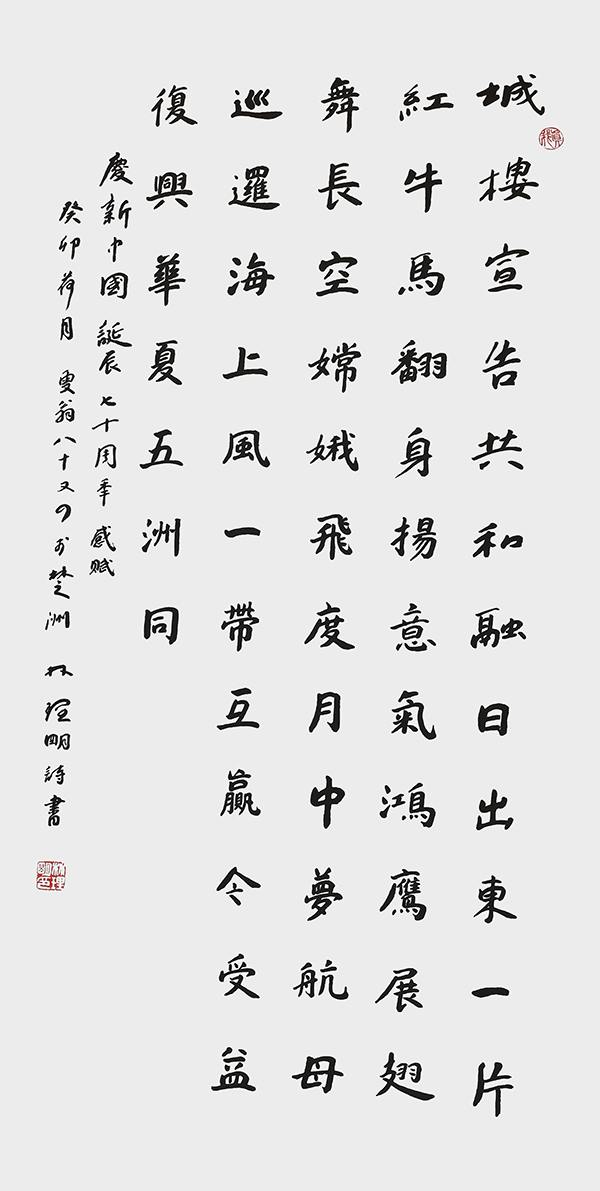 城樓宣告共和融日出東一片
紅牛馬翻身揚意氣鴻鷹展翅
舞長空嫦娥飛度月中夢航母
巡邏海上風一帶互贏今受益
復興華夏五洲同
慶新中國誕辰七十周秊感賦
癸卯荷月 叟翁八十又四於楚洲 林理明詩書